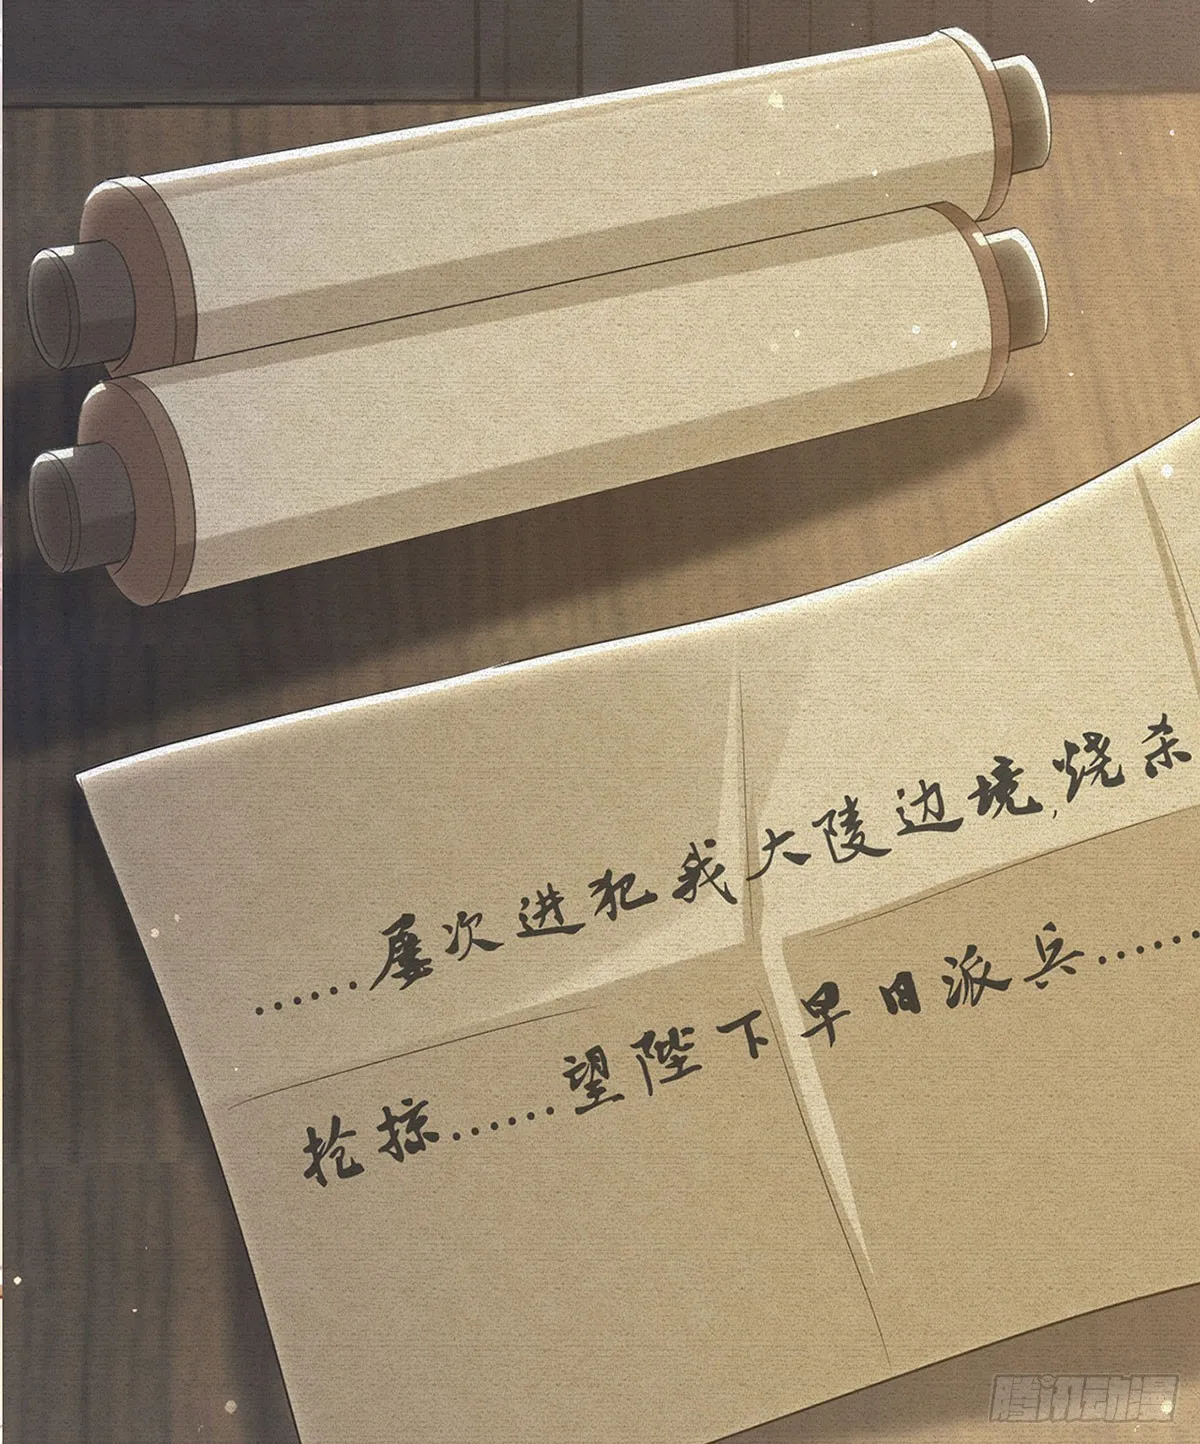 ……屡次进犯我大陵边境,烧杀
抢掠……望陛下早日派兵……
腾讯动漫